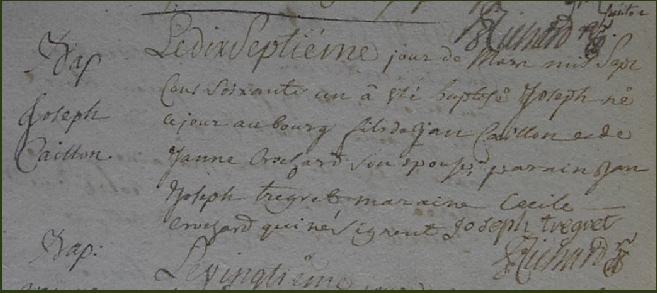 Richard
Bap
Joseph
Caillon.
Le dix septiéme jour de Mars mil sept
cens soixante un a été baptisé Joseph né
ce jour au bourg fils de Jan Caillon et de
Janne Crochard son epouse, parain Jan
Joseph tregret maraine Cecile
crochard qui ne signent Joseph tregret
Richard
Bap:
Le vingtiéme